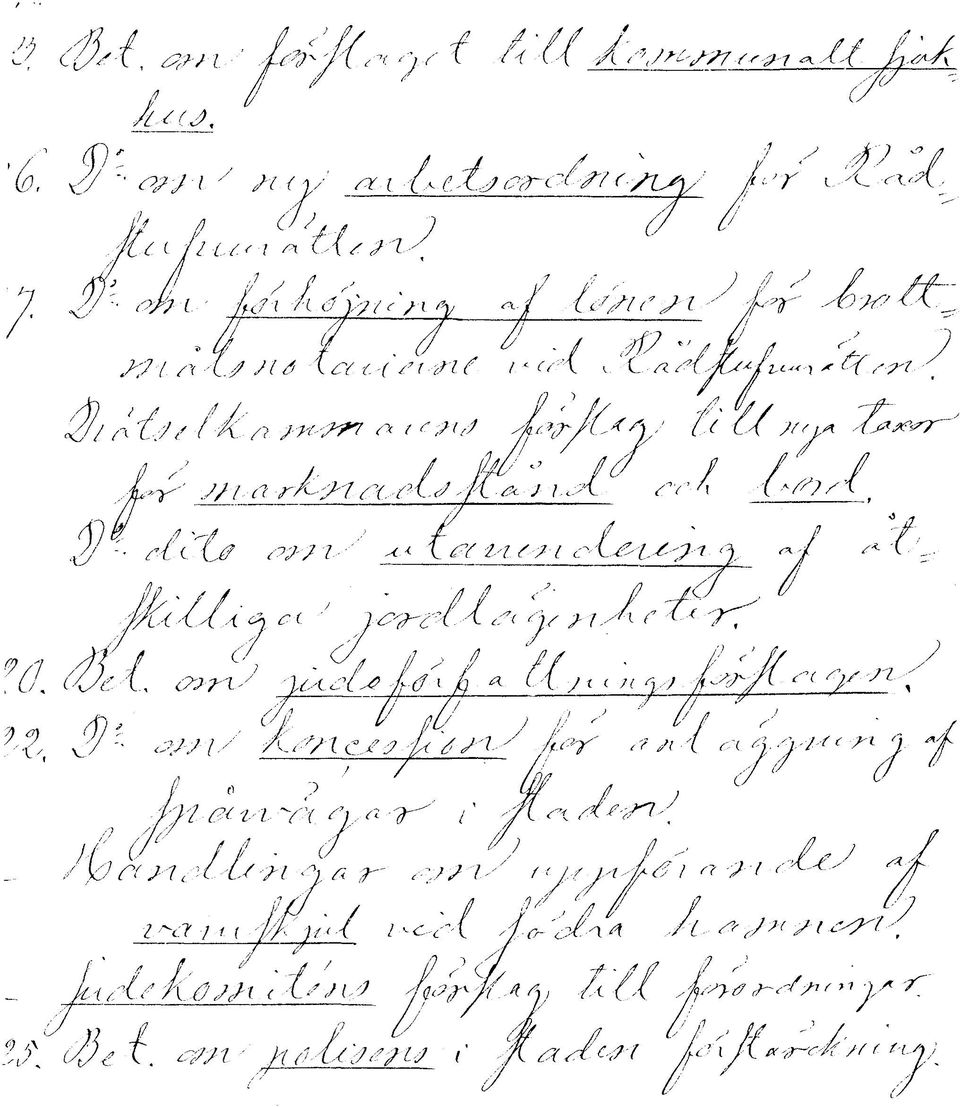 13. Bet. om förslaget till kommunalt sjuk-
hus.
16. D:o om ny arbetsordning för Råd-
stufvurätten.
17. D:o om förhöjning af lönen för brott-
målsnotarierne vid Rådstufvurätten.
Drätselkammarens förslag till nya taxor
för marknadsstånd och bord.
D:o dito om utarrendering af åt-
skilliga jordlägenheter.
20. Bet. om judeförfattningsförslagen.
22. D:o om koncession för anläggning af
spårvägar i staden.
- Handlingar om uppförande af
varuskjul vid södra hamnen.
- Judekomiténs förslag till förordningar.
25. Bet. om polisens i staden förstärckning.